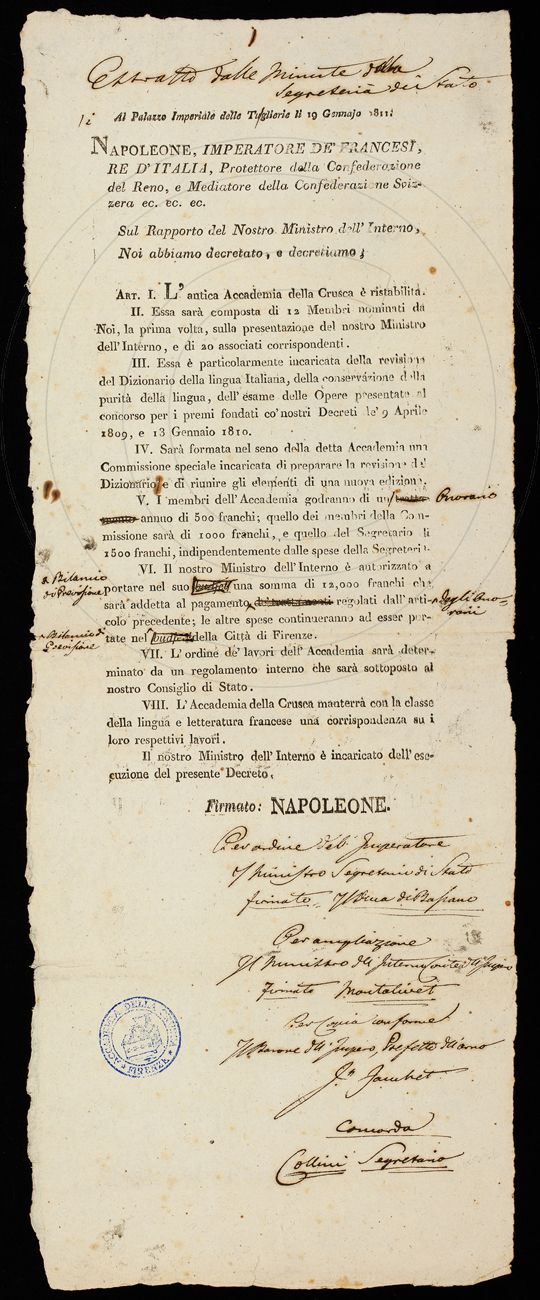 Estratto dalle Minute della
Segreteria di Stato
Al Palazzo Imperiale delle Tuglierie li 19 Gennajo 1811.
NAPOLEONE, IMPERATORE DE' FRANCESI,
RE D'ITALIA, Protettore della Confederazione
del Reno, e Mediatore della Confederazione Sviz-
zera ec. ec. ec.
Sul Rapporto del Nostro Ministro dell'Interno,
Noi abbiamo decretato, e decretiamo;
ART. I. L'antica Accademia della Crusca è ristabilita.
II. Essa sarà composta di 12 Membri nominati da
Noi, la prima volta, sulla presentazione del nostro Ministro
dell'Interno, e di 20 associati corrispondenti.
III. Essa è particolarmente incaricata della revisione
del Dizionario della lingua Italiana, della conservazione della
purità della lingua, dell'esame delle Opere presentate al
concorso per i premi fondati co'nostri Decreti de' 9 Aprile
1809, e 13 Gennaio 1810.
IV. Sarà formata nel seno della detta Accademia una
Commissione speciale incaricata di preparare la revisione del
Dizionario, e di riunire gli elementi di una nuova edizione.
V. I membri dell'Accademia godranno di un tratta- Onorario
mento annuo di 500 franchi; quello dei membri della Com-
missione sarà di 1000 franchi, e quello del Segretario di
1500 franchi, indipendentemente dalle spese della Segreteria.
VI. Il nostro Ministro dell'Interno è autorizzato a
Bilancio
di Previsione
portare nel suo budjet una somma di 12,000 franchi che
sarà addetta al pagamento de' trattamenti regolati dall'arti-
degli Ono-
rarii
colo precedente; le altre spese continueranno ad esser por-
Bilancio di
Previsione
tate nel budjet della Città di Firenze.
VII. L'ordine de' lavori dell'Accademia sarà deter-
minato da un regolamento interno che sarà sottoposto al
nostro Consiglio di Stato.
VIII. L'Accademia della Crusca manterrà con la classe
della lingua e letteratura francese una corrispondenza su i
loro respettivi lavori.
Il nostro Ministro dell'Interno è incaricato dell'ese-
cuzione del presente Decreto.
Firmato: NAPOLEONE.
Per ordine dell'Imperatore
Il Ministro Segretario di Stato
firmato Il Duca di Bassano
Per ampliazione
Il Ministro dell'Interno Conte dell'Impero
firmato Montalivet
Per Copia conforme
Il Barone dell'Impero, Prefetto dell'Arno
Fauchet
Concorda
Collini Segretario
ACCADEMIA DELLA CRUSCA
FIRENZE